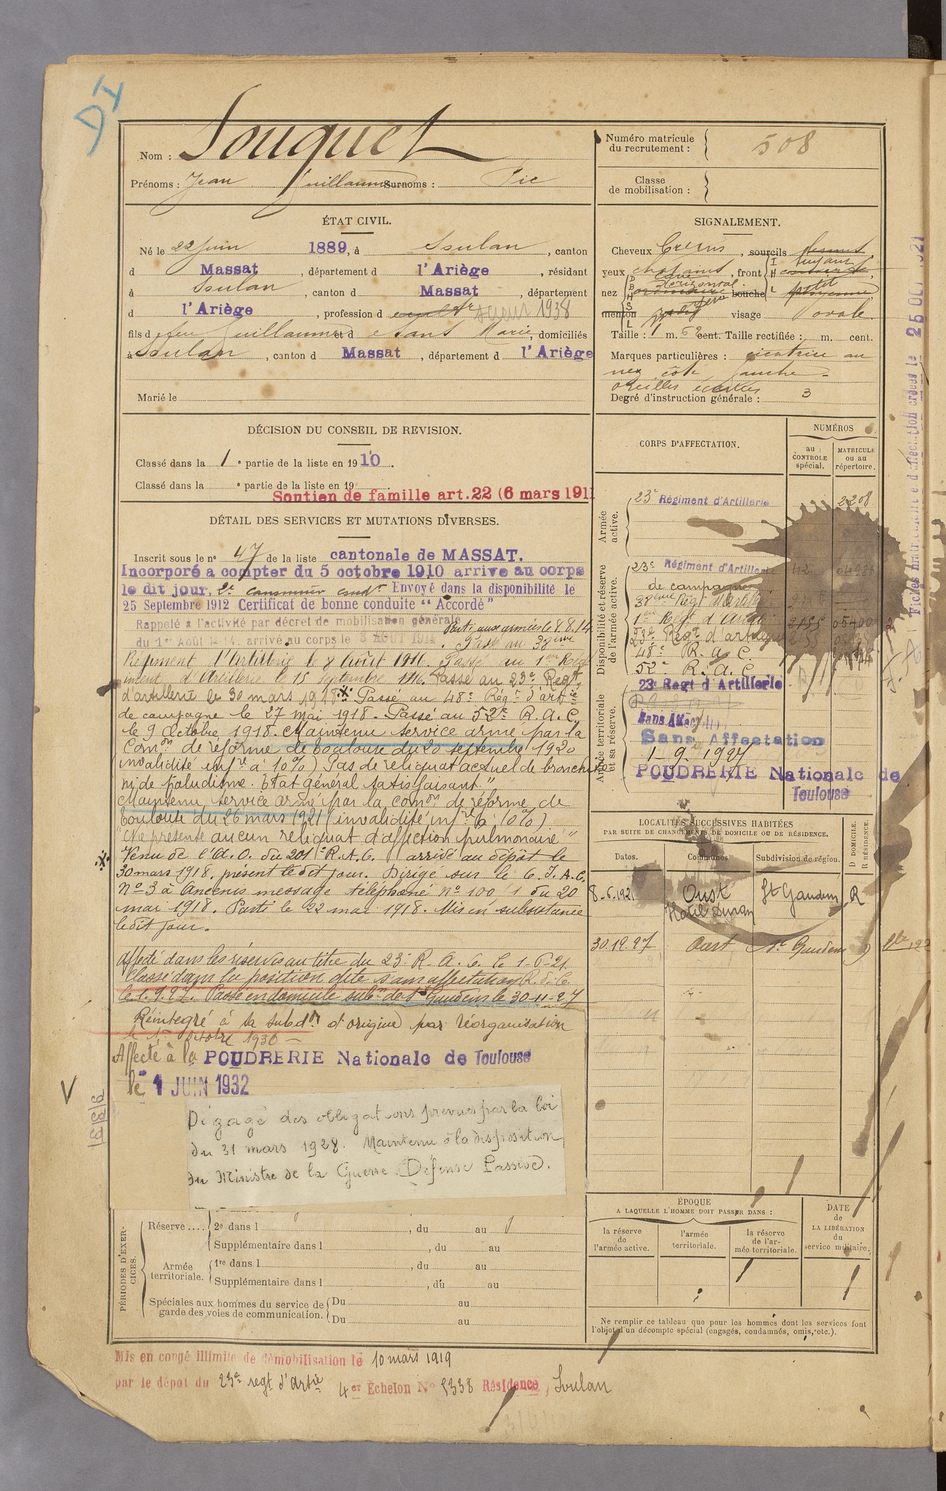 DI
Nom : Souquet
Prénoms : Jean Guillaume Surnoms : Pic
Numéro matricule du recrutement : 508
Classe de mobilisation :
ÉTAT CIVIL.
Né le 22 juin 1889, à Soulan, canton
d Massat, département d l'Ariège, résidant
à Soulan, canton d Massat, département
d l'Ariège, profession de 1938
fils de feu Guillaume et d e Sans Marie, domiciliés
à Soulan, canton d Massat, département d l'Ariège
Marié le
SIGNALEMENT.
Cheveux, sourcils
yeux châtains, front
nez horizontal bouche
menton visage ovale
Taille : 1 m. 62 cent. Taille rectifiée : m. cent.
Marques particulières : cicatrice au
nez côté gauche
oreilles écartées
Degré d'instruction générale : 3
DÉCISION DU CONSEIL DE REVISION.
Classé dans la 1e partie de la liste en 1910.
Classé dans la e partie de la liste en 19
Soutien de famille art. 22 (6 mars 1911
DÉTAIL DES SERVICES ET MUTATIONS DIVERSES.
Inscrit sous le no 47 de la liste cantonale de MASSAT.
Incorporé à compter du 5 octobre 1910 arrive au corps
le dit jour, 2e canonnier condr Envoyé dans la disponibilité le
25 Septembre 1912 Certificat de bonne conduite "Accordé"
Rappelé à l'activité par décret de mobilisation générale
du 1er Août 1914, arrivé au corps le 3 AOUT 1914. Parti aux armées le 8.8.14
Passé au 3eme
Régiment d'Artillerie le 8 août 1911. Passé au 1er Régi
ment d'Artillerie le 15 septembre 1916. Passé au 23e Regt
d'artillerie le 30 mars 1918. Passé au 48e Régt d'artie
de campagne le 27 mai 1918. Passé au 52e R.A.C
le 9 Octobre 1918. Maintenu service armé par la
Comon de réforme de Toulouse du 20 septembre 1920
invalidité infre à 10%) Pas de reliquat actuel de bronchite
ni de paludisme. Etat général satisfaisant"
Maintenu service armé par la comon de réforme de
Toulouse du 26 mars 1921 (invalidité infre à 10%)
"Ne présente aucun reliquat d'affection pulmonaire"
Venu de l'A.O. du 201e R.A.C. arrivé au dépôt le
30 mars 1918, présent le dit jour. Dirigé sur le C.I.A.C.
No 3 à Ancenis message téléphoné no 100/1 du 20
mai 1918. Parti le 22 mai 1918. Mis en subsistance
le dit jour.
Affecté dans les réserves au titre du 23e R.A.C. le 1-6-21
Classé dans la position dite sans affectation
le 1.9.27. Passé en domicile subon de St Gaudens le 30-11-27
Réintégré à la subdon d'origine par réorganisation
le 1er octobre 1930
Affecté à la POUDRERIE Nationale de Toulouse
le 1 JUIN 1932
Dégagé des obligations prévues par la loi
du 31 mars 1928. Maintenu à la disposition
du Ministre de la Guerre Défense Passive.
CORPS D'AFFECTATION.
NUMÉROS
au CONTROLE spécial.
MATRICULE ou au répertoire.
Armée active.
23e Régiment d'Artillerie 2208
Disponibilité et réserve de l'armée active.
23e Régiment d'Artillerie
de campagne
48e R.a.C
52e R.A.C.
23e Regt d'Artillerie
Armée territoriale et sa réserve.
Sans Affectation
1.9.1927
POUDRERIE Nationale de
Toulouse
LOCALITÉS SUCCESSIVES HABITÉES
PAR SUITE DE CHANGEMENTS DE DOMICILE OU DE RÉSIDENCE.
Dates. Communes. Subdivision de région. D DOMICILE. R RÉSIDENCE.
8-6-1921 Oust St Gaudens R
30.12.27 Oust St Gaudens
PÉRIODES D'EXERCICES.
Réserve.... 2e dans l , du au
Supplémentaire dans l , du au
Armée territoriale. 1re dans l , du au
Supplémentaire dans l , du au
Spéciales aux hommes du service de garde des voies de communication. Du au
Du au
ÉPOQUE
A LAQUELLE L'HOMME DOIT PASSER DANS :
la réserve de l'armée active.
l'armée territoriale.
la réserve de l'armée territoriale.
DATE de LA LIBÉRATION du service militaire.
Ne remplir ce tableau que pour les hommes dont les services font
l'objet d'un décompte spécial (engagés, condamnés, omis, etc.).
Mis en congé illimité de démobilisation le 10 mars 1919
par le dépôt du 23e regt d'Artie 4er Echelon No 5338 Résidence, Soulan